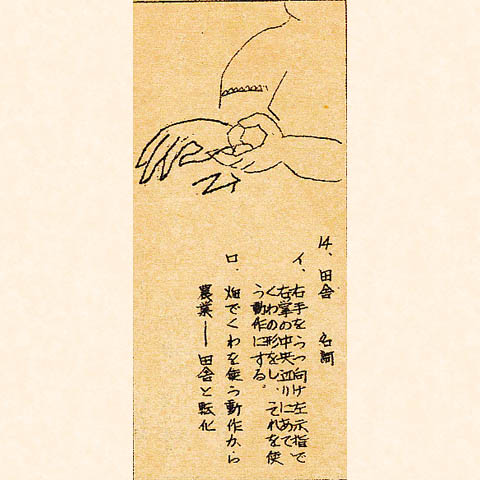 14、田舎　名詞
イ、右手をうつ向け左示指で
右掌の中央辺りにあて
くわの形をし、それを使
う動作にする。
ロ、畑でくわを使う動作から
農業――田舎と転化